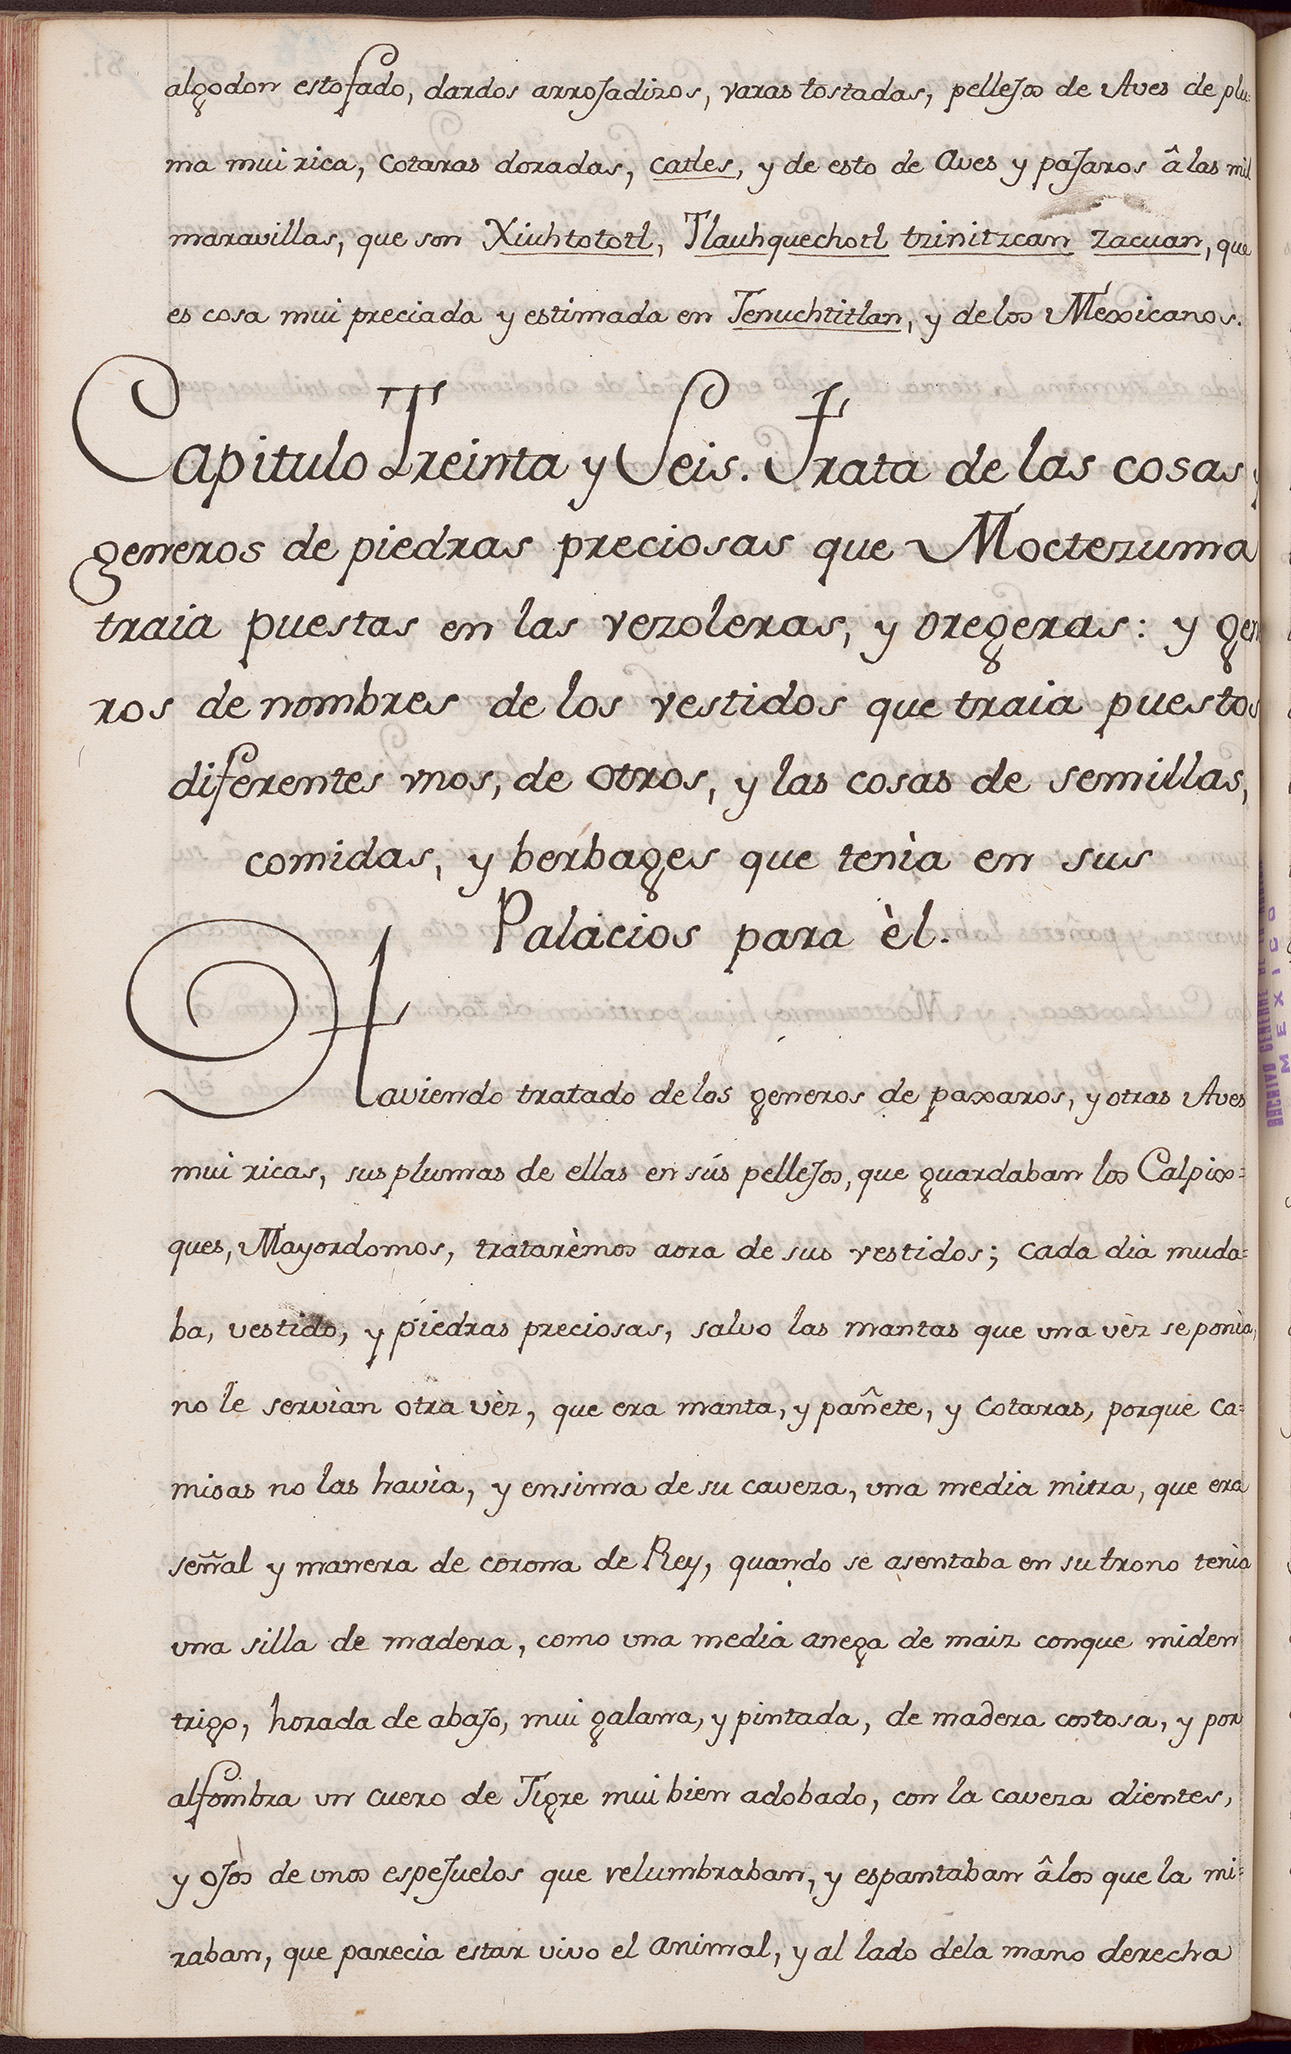 algodon estofado, dardos arrojadizos, varas tostadas, pellejos de Aves de plu=
ma mui rica, cotaras doradas, catles, y de esto de Aves y pajaros â las mil
maravillas, que son Xiuhtototl, Tlauhquechotl tzinitzcan zacuan, que
es cosa mui preciada y estimada en Tenuchtitlan, y de los Mexicanos.
Capitulo Treinta y Seis. Trata de las cosas y
generos de piedras preciosas que Moctezuma
traia puestas en las vezoleras, y oregeras: y gen
ros de nombres de los vestidos que traia puestos
diferentes vnos, de otros, y las cosas de semillas,
comidas, y berbages que tenìa en sus
Palacios para èl.
Haviendo tratado de los generos de paxaros, y otras Aves
mui ricas, sus plumas de ellas en sús pellejos, que guardaban los Calpix=
ques, Mayordomos, tratarèmos aora de sus vestidos; cada dia muda=
ba, vestido, y piedras preciosas, salvo las mantas que una vèz se ponìa,
no le servìan otra vèz, que era manta, y pañete, y cotaras, porque ca=
misas no las havìa, y ensima de su caveza, una media mitra, que era
señal y manera de corona de Rey, quando se asentaba en su trono tenìa
una silla de madera, como una media anega de maiz conque miden
trigo, horada de abajo, mui galana, y pintada, de madera costosa, y por
alfombra un cuero de Tigre mui bien adobado, con la caveza dientes,
y ojos de unos espejuelos que relumbraban, y espantaban â los que la mi=
raban, que parecìa estar vivo el animal, y al lado dela mano derecha
ARCHIVO GENERAL DE
MEXICO